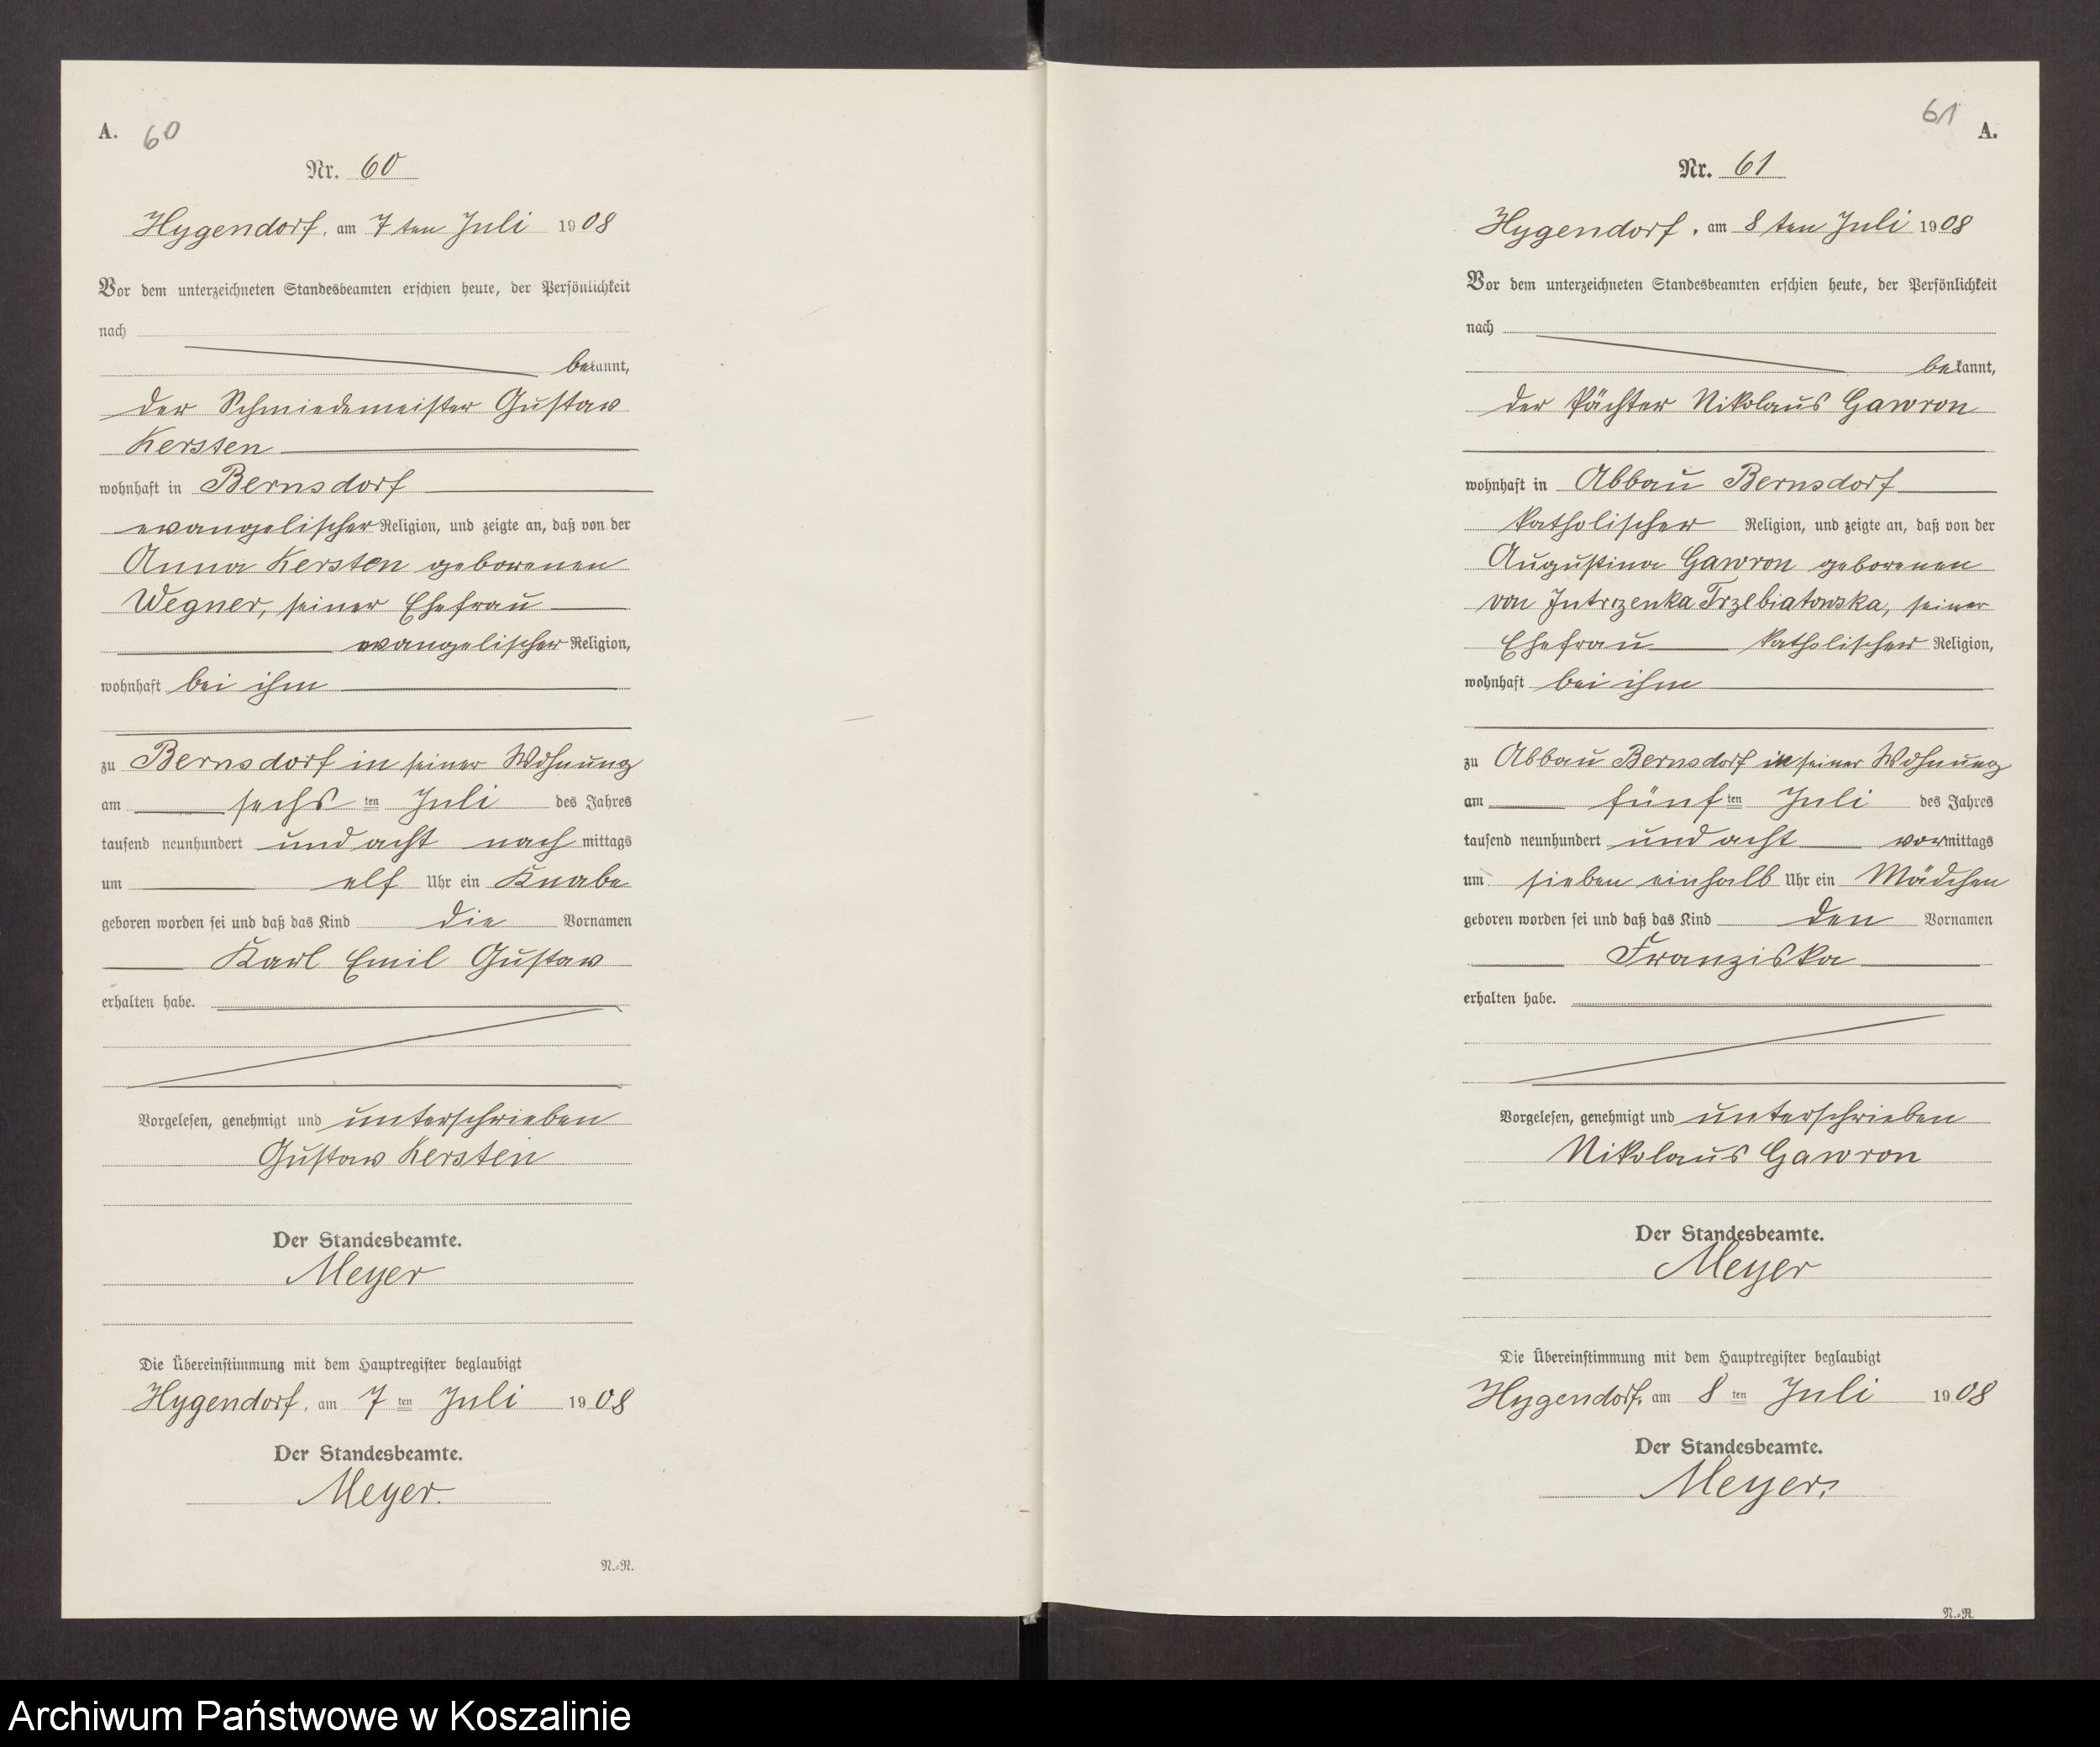 A. 60
Nr. 60
Hygendorf, am 7 ten Juli 1908
Vor dem unterzeichneten Standesbeamten erschien heute, der Persönlichkeit
nach
bekannt,
der Schmiedemeister Gustav
Kersten
wohnhaft in Bernsdorf
evangelischer Religion, und zeigte an, daß von der
Anna Kersten geborenen
Wegner, seiner Ehefrau
evangelischer Religion,
wohnhaft bei ihm
zu Bernsdorf in seiner Wohnung
am sechs ten Juli des Jahres
tausend neunhundert und acht nach mittags
um elf Uhr ein Knabe
geboren worden sei und daß das Kind die Vornamen
Karl Emil Gustav
erhalten habe.
Vorgelesen, genehmigt und unterschrieben
Gustav Kersten
Der Standesbeamte.
Meyer
Die Übereinstimmung mit dem Hauptregister beglaubigt
Hygendorf, am 7 ten Juli 1908
Der Standesbeamte.
Meyer.
N.=N.
61 A.
Nr. 61
Hygendorf, am 8 ten Juli 1908
Vor dem unterzeichneten Standesbeamten erschien heute, der Persönlichkeit
nach
bekannt,
der Pächter Nikolaus Gawron
wohnhaft in Abbau Bernsdorf
katholischer Religion, und zeigte an, daß von der
Augustina Gawron geborenen
von Trzebiatowska, seiner
Ehefrau katholischer Religion,
wohnhaft bei ihm
zu Abbau Bernsdorf in seiner Wohnung
am fünf ten Juli des Jahres
tausend neunhundert und acht vormittags
um sieben einhalb Uhr ein Mädchen
geboren worden sei und daß das Kind den Vornamen
Franziska
erhalten habe.
Vorgelesen, genehmigt und unterschrieben
Nikolaus Gawron
Der Standesbeamte.
Meyer
Die Übereinstimmung mit dem Hauptregister beglaubigt
Hygendorf, am 8 ten Juli 1908
Der Standesbeamte.
Meyer.
N.=N.
Archiwum Państwowe w Koszalinie